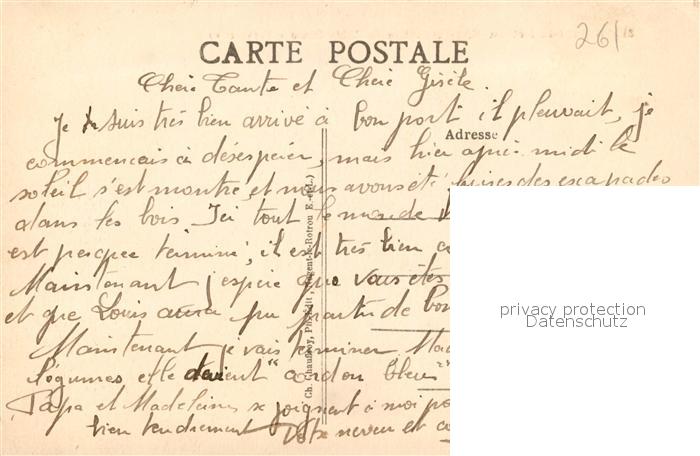 261
CARTE POSTALE
Chère Tante et Chère Gisèle.
Je suis très bien arrivé à bon port il pleuvait, je
Adresse
commencais à désespérer, mais hier après midi le
soleil s'est montré et nous avons été faires des escapades
dans les bois Ici tout le monde
est presque terminé, il est très bien
Maintenant j'espère que vous êtes
et que Louis aura pu partir de bon
Maintenant je vais terminer Mad
légumes elle devient "cordon bleu"
Papa et Madeleine se joignent à moi po
bien tendrement Votre neveu et
Ch. Chaudroy, Phot. Edit., Nogent-le-Rotrou E.-et-L.
privacy protection
Datenschutz